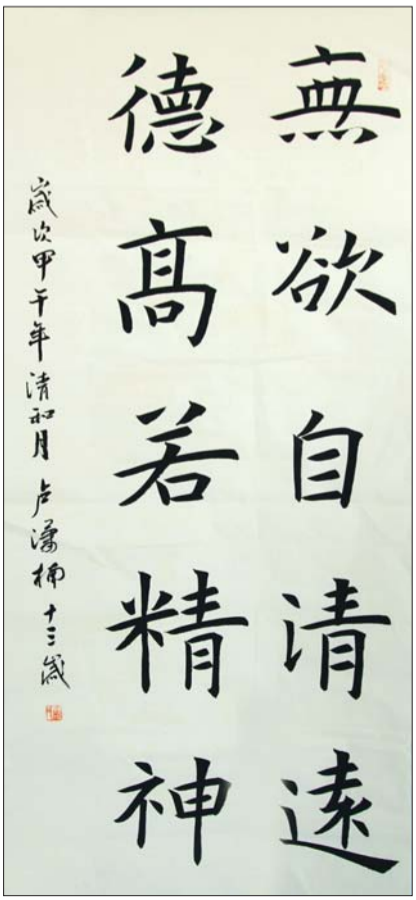 無欲自清遠
德髙若精神
歲次甲午年清和月 卢潇楠 十三歲